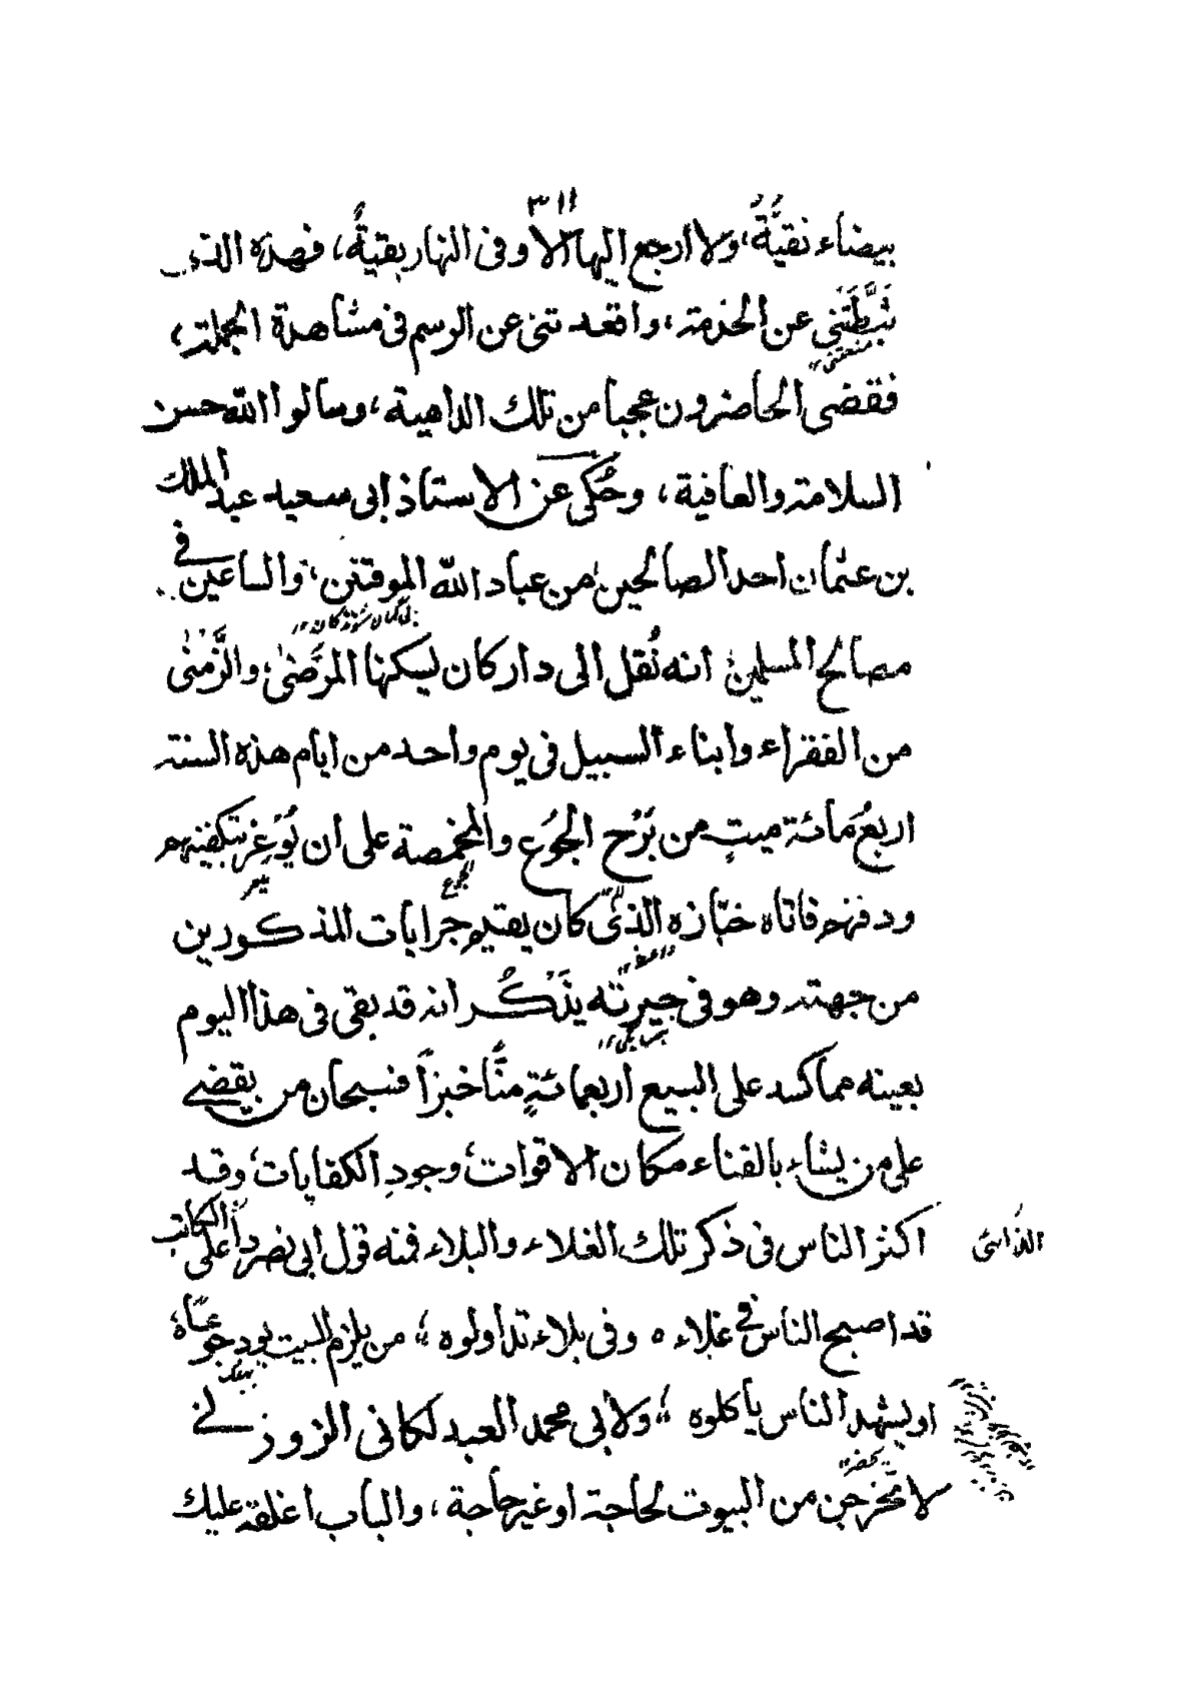 ٣١١
بيضاء نقيَّةً، ولا ارجع اليها الا وفى النهار بقيةٌ، فهذه التى
ثبَّطَتَنِى عن الخدمة، واقعدتنى عن الرسم فى مشاهدة الجملة،
فقضى الحاضرون عجبا من تلك الداهية، وسالوا الله حسن
السلامة والعافية، وحُكى عن الاستاذ ابى سعيد عبد الملك
بن عثمان احد الصالحين من عباد الله الموقنين، والساعين فى
مصالح المسلمين انه نُقل الى دار كان يسكنها المرَضىٰ، والزَّمْنٰى
من الفقراء وابناء السبيل فى يوم واحد من ايام هذه السنة
اربعُمائة ميتٍ من بَرْح الجُوْع والمخمصة على ان يُوْعِز بتكفينهم
ودفنهم فاتاه خبّازه الذى كان يقيم جرايات المذكورين
من جهته وهو فى حيرته يذَكُر انه قد بقى فى هذا اليوم
بعينه مما كسد على البيع اربعمائةٍ منًّا خبزاً فسبحان من يقضى
على من يشاء بالفناء مكان الاقوات، وجودِ الكفايات، وقد
اكثر الناس فى ذكر تلك الغلاء والبلاء فمنه قول ابى نصر الكاتب
قد اصبح الناس فى غلاءه وفى بلاء تداولوه، من يلزم البيت يود جوعاً
او يشهد الناس ياكلوه، ولابى محمد العبد لكانى الزوزنى
لا تخرجن من البيوت لحاجة او غير حاجة، والباب اغلقه عليك